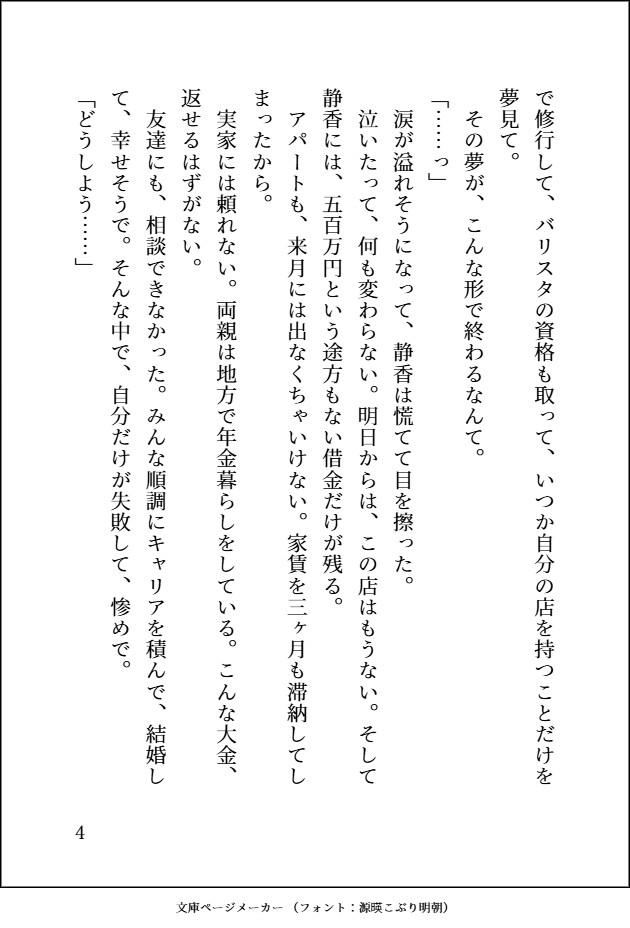 で修行して、バリスタの資格も取って、いつか自分の店を持つことだけを
夢見て。
その夢が、こんな形で終わるなんて。
「……っ」
涙が溢れそうになって、静香は慌てて目を擦った。
泣いたって、何も変わらない。明日からは、この店はもうない。そして
静香には、五百万円という途方もない借金だけが残る。
アパートも、来月には出なくちゃいけない。家賃を三ヶ月も滞納してし
まったから。
実家には頼れない。両親は地方で年金暮らしをしている。こんな大金、
返せるはずがない。
友達にも、相談できなかった。みんな順調にキャリアを積んで、結婚し
て、幸せそうで。そんな中で、自分だけが失敗して、惨めで。
「どうしよう……」
4
文庫ページメーカー（フォント：源暎こぶり明朝）